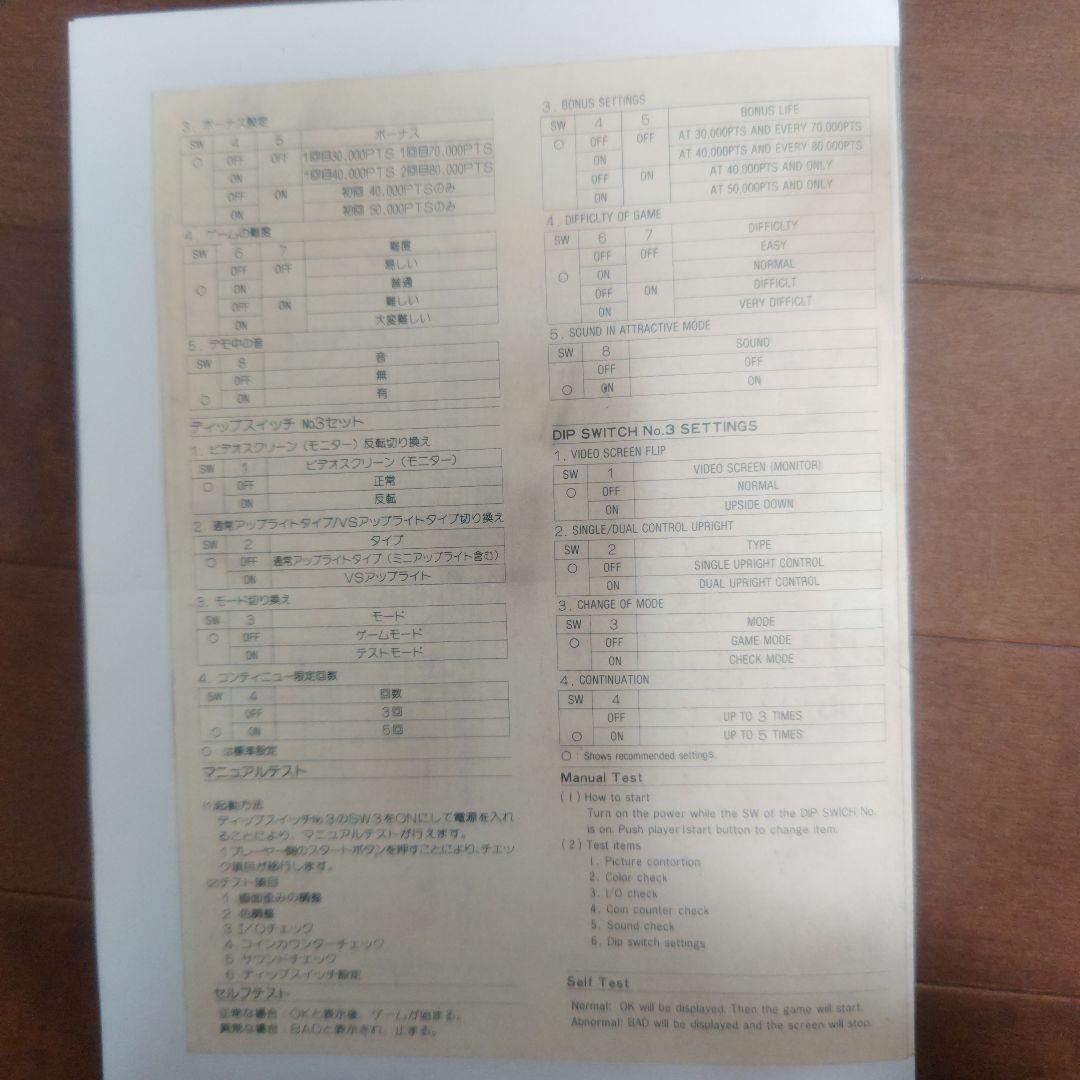 3. ボーナス設定
SW 4 5 ボーナス
○ OFF OFF 1回目30,000PTS 1回目70,000PTS
ON 1回目40,000PTS 2回目80,000PTS
OFF ON 初回 40,000PTSのみ
ON 初回 50,000PTSのみ
4. ゲームの難度
SW 6 7 難度
OFF OFF 易しい
○ ON 普通
OFF ON 難しい
ON 大変難しい
5. デモ中の音
SW 8 音
OFF 無
○ ON 有
ディップスイッチ No3セット
1. ビデオスクリーン(モニター)反転切り換え
SW 1 ビデオスクリーン(モニター)
○ OFF 正常
ON 反転
2. 通常アップライトタイプ/VSアップライトタイプ切り換え
SW 2 タイプ
○ OFF 通常アップライトタイプ(ミニアップライト含む)
ON VSアップライト
3. モード切り換え
SW 3 モード
○ OFF ゲームモード
ON テストモード
4. コンティニュー限定回数
SW 4 回数
OFF 3回
○ ON 5回
○ は標準設定
マニュアルテスト
(1)起動方法
ディップスイッチNo3のSW3をONにして電源を入れ
ることにより、マニュアルテストが行えます。
1プレーヤー側のスタートボタンを押すことにより、チェッ
ク項目が移行します。
(2)テスト項目
1 画面歪みの調整
2 色調整
3 I/Oチェック
4 コインカウンターチェック
5 サウンドチェック
6 ディップスイッチ設定
セルフテスト
正常な場合 OKと表示後、ゲームが始まる。
異常な場合 BADと表示され、止まる。
3. BONUS SETTINGS
SW 4 5 BONUS LIFE
○ OFF OFF AT 30,000PTS AND EVERY 70,000PTS
ON AT 40,000PTS AND EVERY 80,000PTS
OFF ON AT 40,000PTS AND ONLY
ON AT 50,000PTS AND ONLY
4. DIFFICLTY OF GAME
SW 6 7 DIFFICLTY
OFF OFF EASY
○ ON NORMAL
OFF ON DIFFICLT
ON VERY DIFFICLT
5. SOUND IN ATTRACTIVE MODE
SW 8 SOUND
OFF OFF
○ ON ON
DIP SWITCH No.3 SETTINGS
1. VIDEO SCREEN FLIP
SW 1 VIDEO SCREEN (MONITOR)
○ OFF NORMAL
ON UPSIDE DOWN
2. SINGLE/DUAL CONTROL UPRIGHT
SW 2 TYPE
○ OFF SINGLE UPRIGHT CONTROL
ON DUAL UPRIGHT CONTROL
3. CHANGE OF MODE
SW 3 MODE
○ OFF GAME MODE
ON CHECK MODE
4. CONTINUATION
SW 4
OFF UP TO 3 TIMES
○ ON UP TO 5 TIMES
○ : Shows recommended settings.
Manual Test
(1) How to start
Turn on the power while the SW of the DIP SWICH No.
is on. Push player 1start button to change item.
(2) Test items
1. Picture contortion
2. Color check
3. I/O check
4. Coin counter check
5. Sound check
6. Dip switch settings
Self Test
Normal: OK will be displayed. Then the game will start.
Abnormal: BAD will be displayed and the screen will stop.